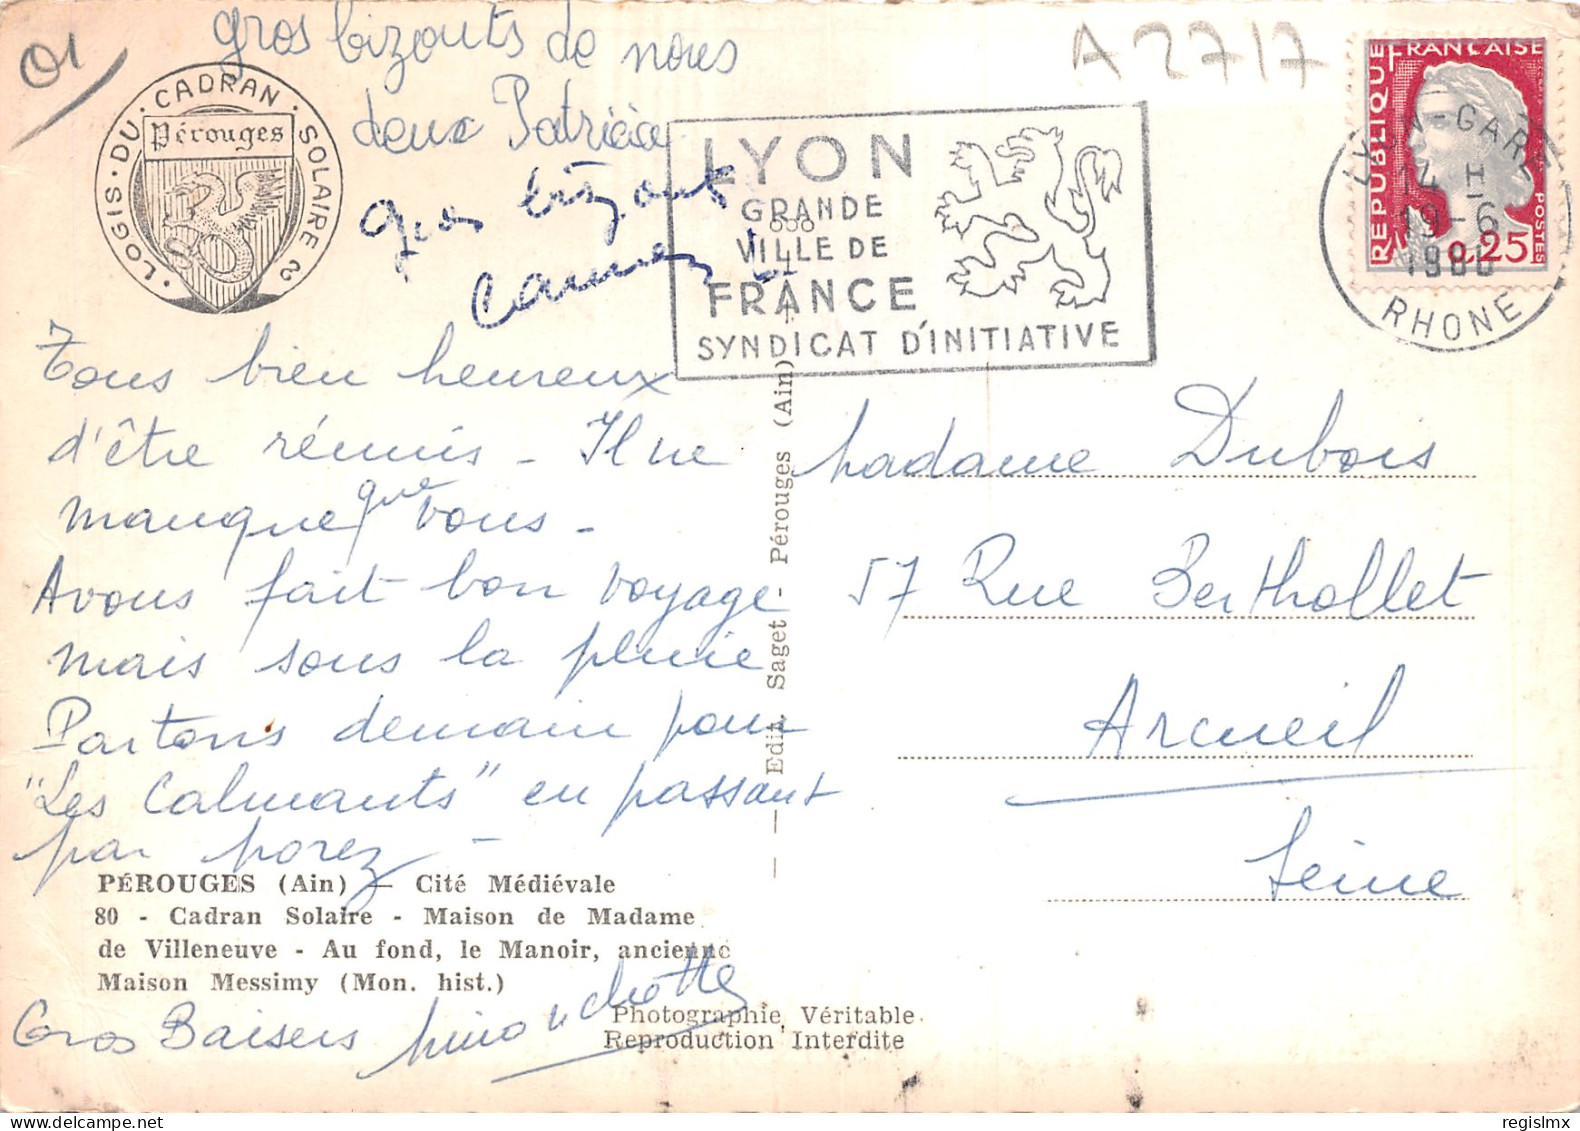 01
gros bizouts de nous
deux Patricia
gros bizouts
A 2717
LOGIS · DU · CADRAN · SOLAIRE
Pérouges
LYON
GRANDE
888
VILLE DE
FRANCE
SYNDICAT D'INITIATIVE
RÉPUBLIQUE FRANÇAISE
POSTES
0,25
LYON-GARE
14 H
19-6
RHONE
Tous bien heureux
d'être réunis - Il ne
manque que vous -
Avons fait bon voyage
mais sous la pluie
Partons demain pour
"Les Calmants" en passant
par
Madame Dubois
57 Rue Berthollet
Arcueil
Seine
Edit. Saget - Pérouges (Ain)
PÉROUGES (Ain) — Cité Médiévale
80 - Cadran Solaire - Maison de Madame
de Villeneuve - Au fond, le Manoir, ancienne
Maison Messimy (Mon. hist.)
Gros Baisers
Photographie Véritable
Reproduction Interdite
regislmx